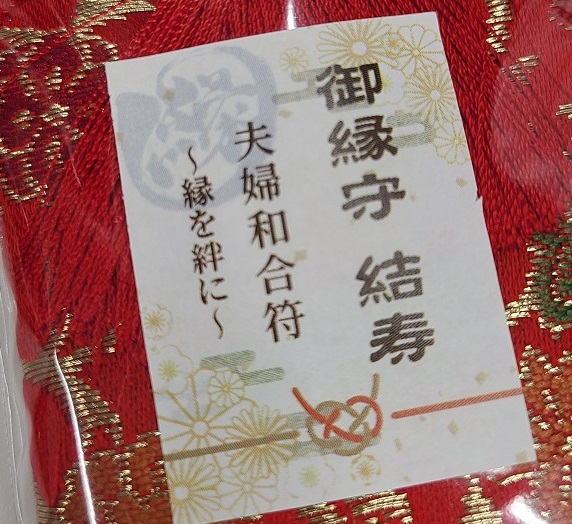 御縁守 結寿
夫婦和合符
～縁を絆に～
縁